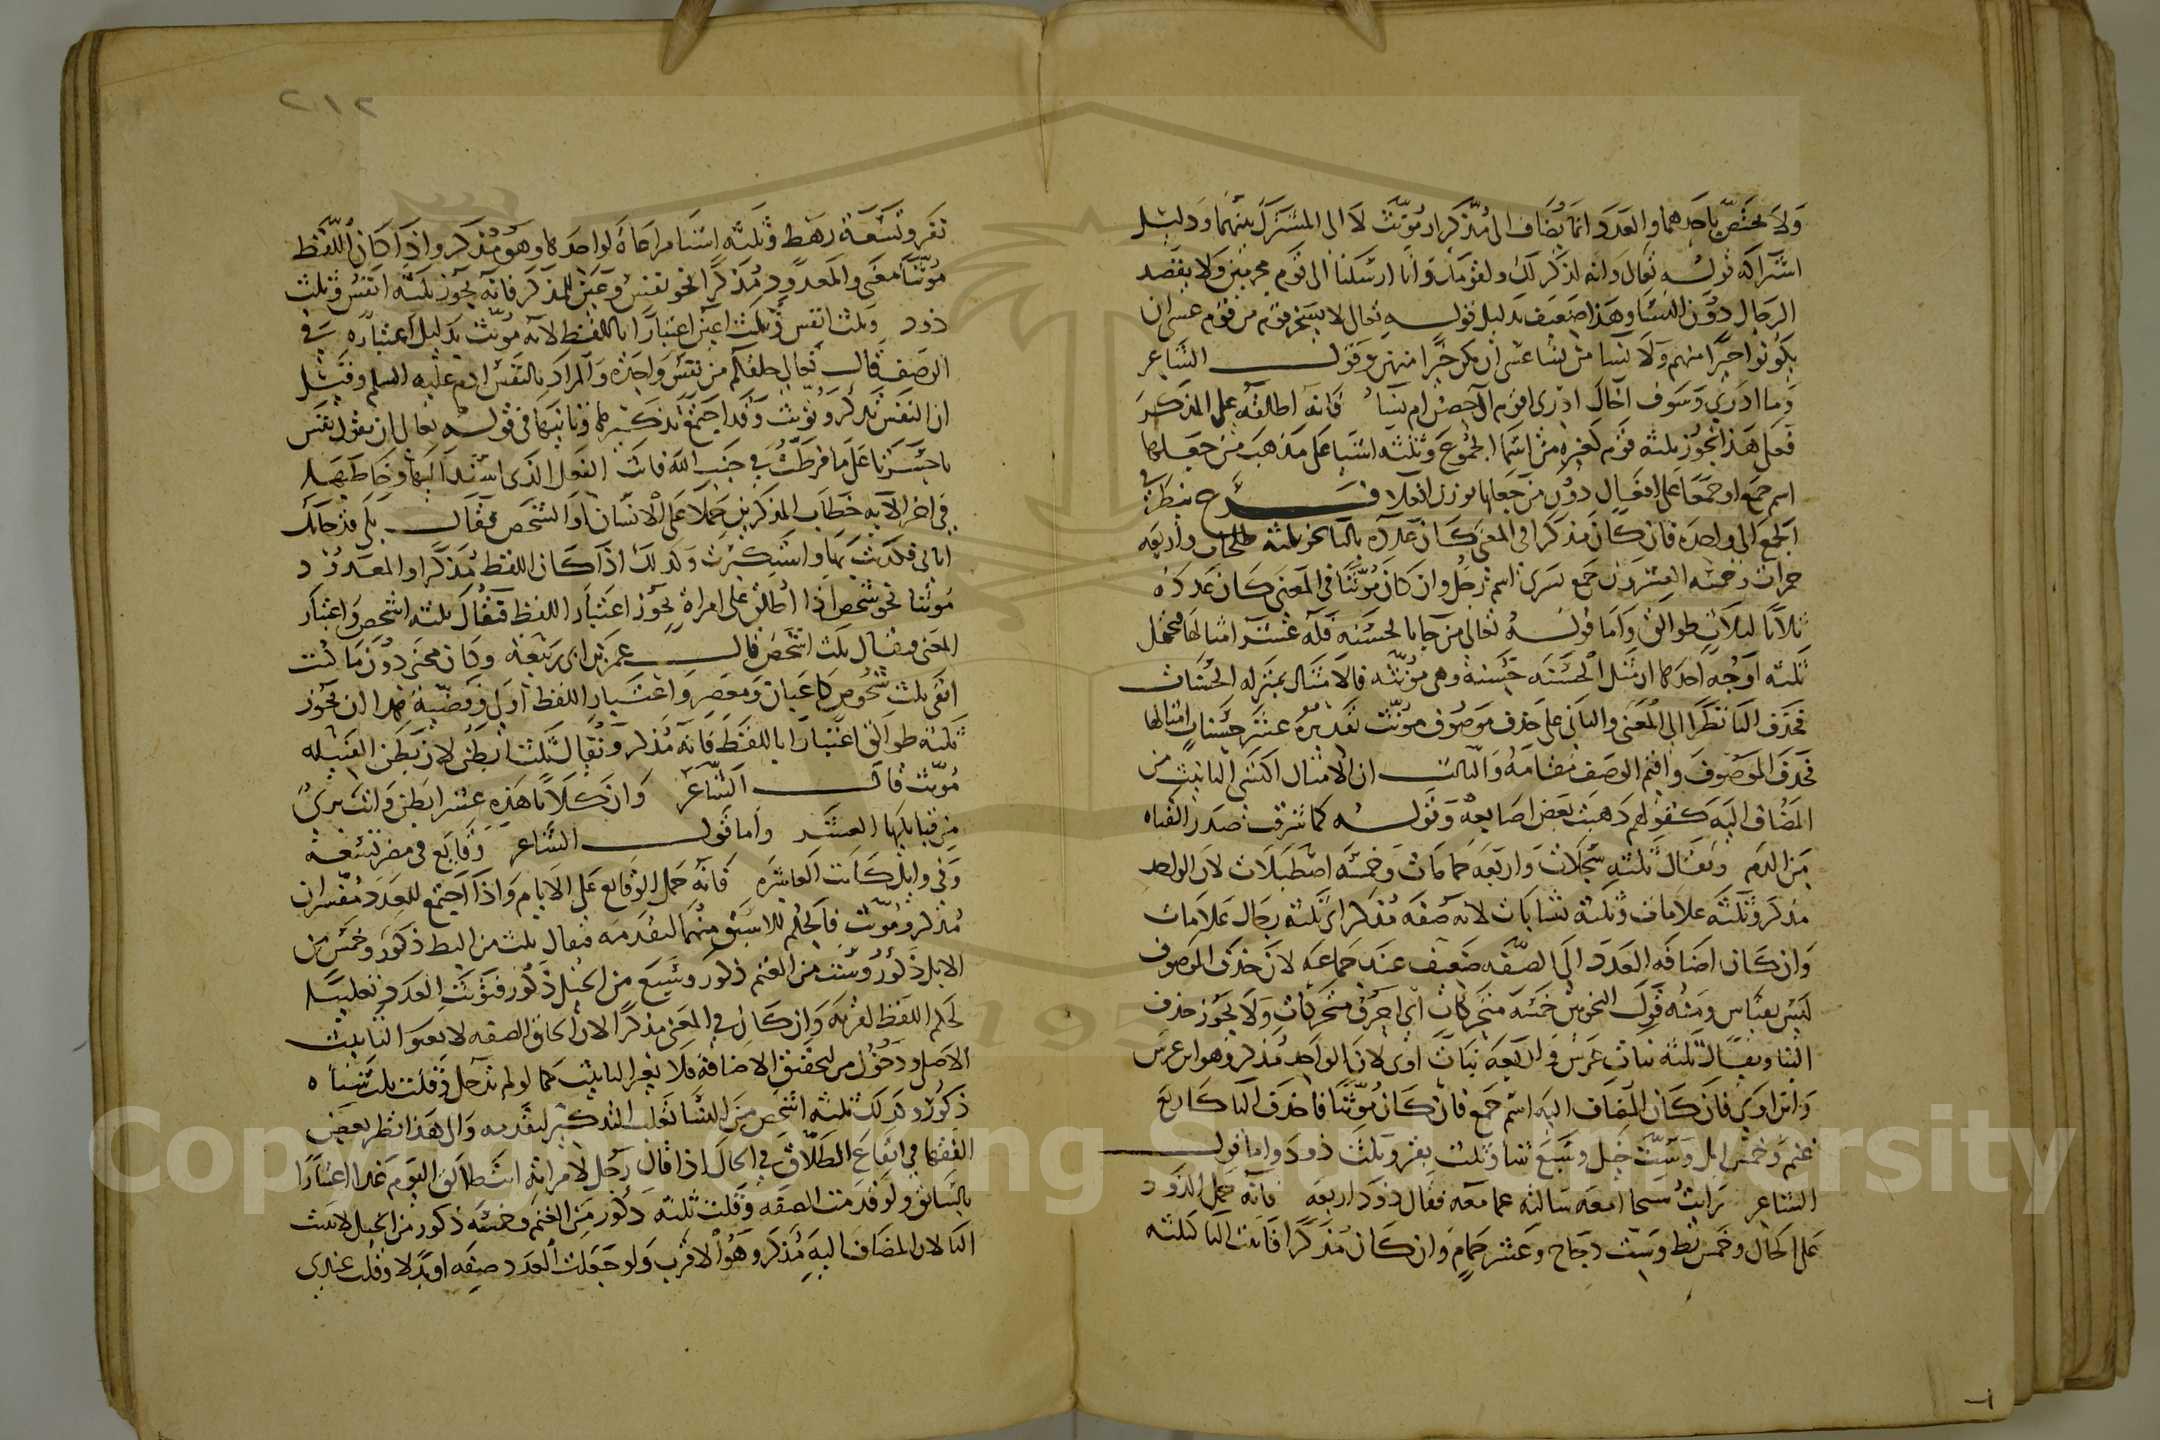 ولا يختص باحدهما والعدد انما يضاف الى مذكر او مؤنث لا الى المشترك بينهما ودليل
اشتراكه قوله تعالى وانه لذكر لك ولقومك وانا ارسلنا الى قوم مجرمين ولا يقصد
الرجال دون النسا وهذا ضعيف بدليل قوله تعالى لا يسخر قوم من قوم عسى ان
يكونوا خيرا منهم ولا نسا من نسا عسى ان يكن خيرا منهن وقول الشاعر
وما ادري وسوف اخال ادرى اقوم ال حصن ام نساء فانه اطلقه على المذكر
فعلى هذا يجوز ثلثة قوم كغيره من اسما الجموع وثلثة اشيا على مذهب من جعلها
اسم جمع او جمعا على افعال دون من جعلها بوزن افعلا فرع ينظر في
الجمع الى واحده فان كان مذكرا في المعنى كان عدده بالتا نحو ثلثة طلحات واربعة
حمزات وخمسة جمع سرى اسم رجل وان كان مؤنثا في المعنى كان عدده
ثلاثا ليلات طوالق واما قوله تعالى من جا بالحسنة فله عشر امثالها فيحتمل
ثلثة اوجه احدها ان مثل الحسنة حسنة وهي مؤنثه فالامثال بمنزلة الحسنات
فحذف التا نظرا الى المعنى والثاني على حذف موصوف مؤنث تقديره عشر حسنات امثالها
فحذف الموصوف واقيم الوصف مقامه والثالث ان الامثال اكتسى التانيث من
المضاف اليه كقولهم ذهبت بعض اصابعه وقوله كما شرقت صدر القناه
من الدم ويقال ثلثة سجلات واربعة حمامات وخمسة اصطبلات لان الواحد
مذكر وثلثة علامات وثلثة نسابات لانه صفة مذكر اي ثلثة رجال علامات
وان كان اضافة العدد الى الصفة ضعيف عند جماعه لان حذف الموصوف
ليس بقياس ومنه قول النحوين خمسة متحركات اي احرف متحركات ولا يجوز حذف
التا ويقال ثلثة بنات عرس واربعة بنات اوى لان الواحد مذكر وهو ابن عرس
وابن اوى فان كان المضاف اليه اسم جمع فان كان مؤنثا فاحذف التا كاربع
غنم وخمس ابل وست خيل وسبع شا وثلث بقر وثلث ذود واما قول
الشاعر معه سالته عما معه فقال ذود اربعه فانه حمل الذود
على الحال وخمس بط وست دجاج وعشر حمام وان كان مذكرا فاثبت التا كثلثة
٢١٢
نفر وتسعة رهط وثلثة اشيا مراعاة لواحدها وهو مذكر واذا كان اللفظ
مؤنثا معنى والمعدود مذكرا نحو نفس وعين للمذكر فانه يجوز ثلثة انفس وثلث
ذود وثلث انفس وثلث اعين اعتبارا باللفظ لانه مؤنث بدليل اعتباره في
الوصف قال تعالى خلقكم من نفس واحدة والمراد بالنفس ادم عليه السلم وقيل
ان النفس تذكر وتؤنث وقد اجتمع تذكيرها وتانيثها في قوله تعالى ان تقول نفس
يا حسرتا على ما فرطت في جنب الله فانث الفعل الذي اسند اليها وخاطبها
في اخر الاية خطاب المذكرين حملا على الانسان او الشخص فقال بلى قد جاتك
اياتي فكذبت بها واستكبرت وكذلك اذا كان اللفظ مذكرا والمعدود
مؤنثا نحو شخص اذا اطلق على امراة يجوز اعتبار اللفظ فتقال ثلثة اشخص واعتبار
المعنى فيقال ثلث اشخص قال عمر بن ابي ربيعة وكان مجني دون ما كنت
اتقي ثلث شخوص كاعبان ومعصر واعتبار اللفظ اولى وقضية هذا ان يجوز
ثلثة طوالق اعتبارا باللفظ فانه مذكر ويقال ثلث ابطن لان بطن القبيلة
مؤنث قال الشاعر وان كلابا هذه عشر ابطن وانت برئ
من قبايلها العشر واما قول الشاعر وقايع في مضر تسعة
وفي وايل كانت العاشرة فانه حمل الوقايع على الايام واذا اجتمع للعدد مفسران
مذكر ومؤنث فالحكم للاسبق منهما لتقدمه فيقال ثلث من البط ذكور وخمس من
الابل ذكور وست من الغنم ذكور وسبع من الخيل ذكور فتؤنث العدد تغليبا
لحكم اللفظ لقربه وان كان في المعنى مذكرا لان الحاق الصفة لا يغير التانيث
الاصلى ودخول من لتحقق الاضافة فلا يغير التانيث كما لو لم تدخل وقلت ثلث شياه
ذكور وكذلك ثلثة اشخص من النسا تغلب التذكير لتقدمه والى هذا نظر بعض
الفقها في ايقاع الطلاق في الحال اذا قال رجل لامراته انت طالق اليوم غدا اعتبارا
بالسابق ولو قدمت الصفة وقلت ثلثة ذكور من الغنم وخمسة ذكور من الخيل لاثبت
التا لان المضاف اليه مذكر وهو الاقرب ولو جعلت العدد صفة او بدلا وقلت عندي